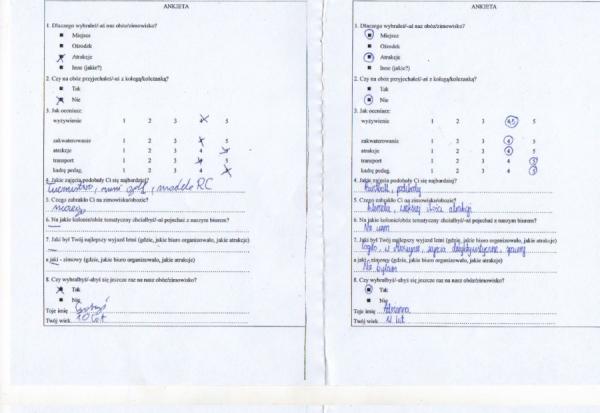 ANKIETA
1. Dlaczego wybrałeś/-aś nasz obóz/zimowisko?
Miejsce
Ośrodek
Atrakcje
Inne (jakie?)
2. Czy na obóz przyjechałeś/-aś z kolegą/koleżanką?
Tak
Nie
3. Jak oceniasz:
wyżywienie 1 2 3 4 5
zakwaterowanie 1 2 3 4 5
atrakcje 1 2 3 4 5
transport 1 2 3 4 5
kadrę pedag. 1 2 3 4 5
4. Jakie zajęcia podobały Ci się najbardziej?
Łucznictwo, mini golf, modele RC
5. Czego zabrakło Ci na zimowisku/obozie?
niczego
6. Na jakie kolonie/obóz tematyczny chciałbyś/-aś pojechać z naszym biurem?
—
7. Jaki był Twój najlepszy wyjazd letni (gdzie, jakie biuro organizowało, jakie atrakcje)
—
a jaki - zimowy (gdzie, jakie biuro organizowało, jakie atrakcje)
—
8. Czy wybrałbyś/-abyś się jeszcze raz na nasz obóz/zimowisko?
Tak
Nie
Twoje imię
Twój wiek 10 lat
ANKIETA
1. Dlaczego wybrałeś/-aś nasz obóz/zimowisko?
Miejsce
Ośrodek
Atrakcje
Inne (jakie?)
2. Czy na obóz przyjechałeś/-aś z kolegą/koleżanką?
Tak
Nie
3. Jak oceniasz:
wyżywienie 1 2 3 4,5 5
zakwaterowanie 1 2 3 4 5
atrakcje 1 2 3 4 5
transport 1 2 3 4 5
kadrę pedag. 1 2 3 4 5
4. Jakie zajęcia podobały Ci się najbardziej?
Paintball, podchody
5. Czego zabrakło Ci na zimowisku/obozie?
większej ilości atrakcji
6. Na jakie kolonie/obóz tematyczny chciałbyś/-aś pojechać z naszym biurem?
Nie wiem
7. Jaki był Twój najlepszy wyjazd letni (gdzie, jakie biuro organizowało, jakie atrakcje)
a jaki - zimowy (gdzie, jakie biuro organizowało, jakie atrakcje)
Nie byłam
8. Czy wybrałbyś/-abyś się jeszcze raz na nasz obóz/zimowisko?
Tak
Nie
Twoje imię Adrianna
Twój wiek 12 lat